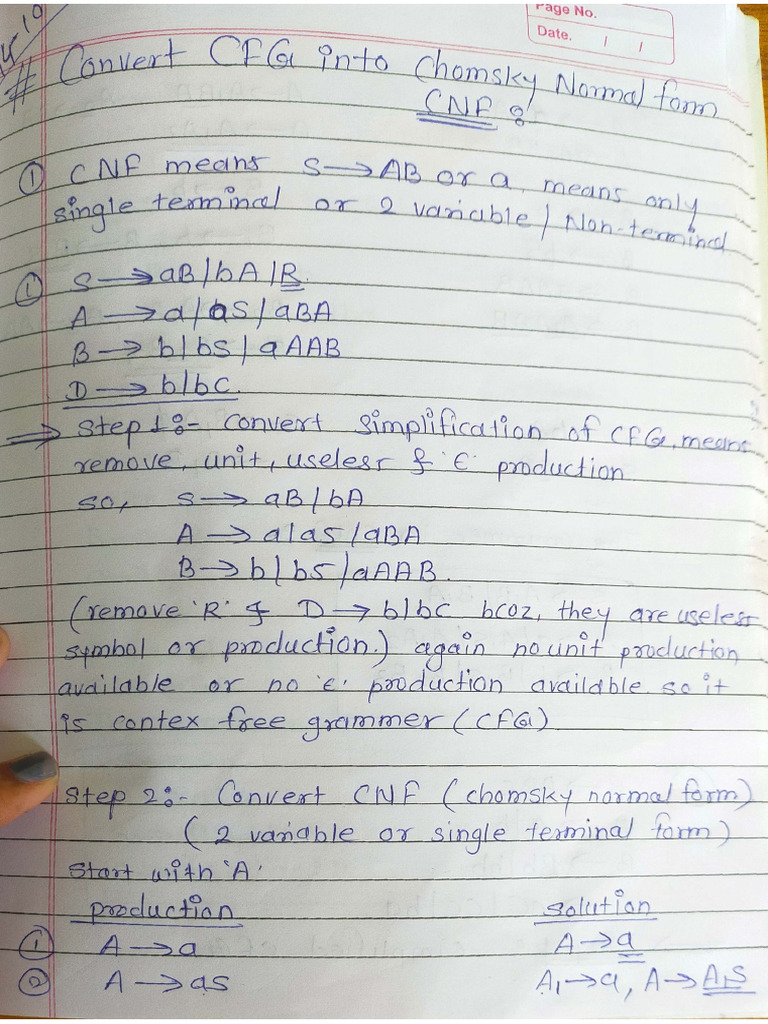 Page No.
Date. / /
# Convert CFG into Chomsky Normal form
CNF :
① CNF means S → AB or a, means only
single terminal or 2 variable / Non-terminal
① S → aB/bA/R.
A → a/aS/aBA
B → b/bS/aAAB
D → b/bC.
⇒ Step 1:- Convert Simplification of CFG, means
remove, unit, useless & 'ϵ' production
so, S → aB/bA
A → a/aS/aBA
B → b/bS/aAAB.
(remove 'R' & D → b/bC bcoz, they are useless
symbol or production.) again no unit production
available or no 'ϵ' production available. so it
is contex free grammer (CFG)
Step 2:- Convert CNF (chomsky normal form)
(2 variable or single terminal form)
Start with 'A'
production solution
① A → a A → a
② A → aS A₁ → a, A → A₁S